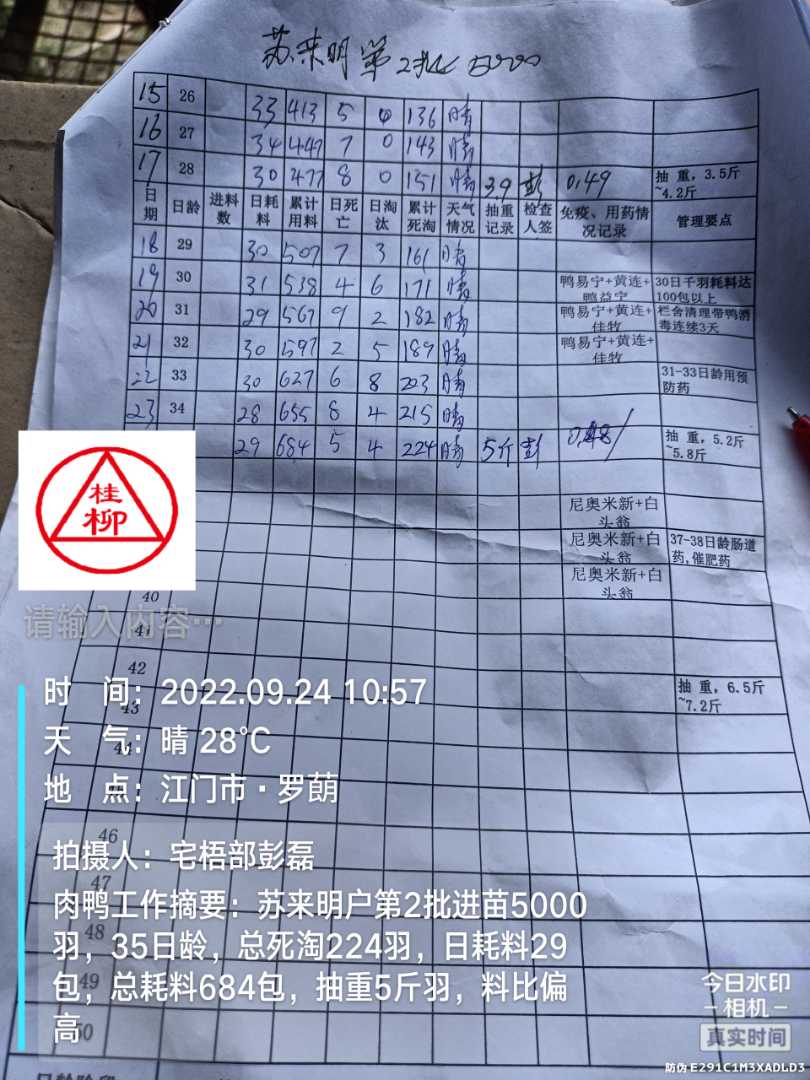 苏来明第2批 5000
15 26 33 413 5 0 136 晴
16 27 34 447 7 0 143 晴
17 28 30 477 8 0 151 晴 3.9 彭 0.49 抽重，3.5斤~4.2斤
日期 日龄 进料数 日耗料 累计用料 日死亡 日淘汰 累计死淘 天气情况 抽重记录 检查人签 免疫、用药情况记录 管理要点
18 29 30 507 7 3 161 晴
19 30 31 538 4 6 171 晴 鸭易宁+黄连+鸭益宁 30日千羽耗料达100包以上
20 31 29 567 9 2 182 晴 鸭易宁+黄连+佳牧 栏舍清理带鸭消毒连续3天
21 32 30 597 2 5 189 晴 鸭易宁+黄连+佳牧
22 33 30 627 6 8 203 晴 31-33日龄用预防药
23 34 28 655 8 4 215 晴
29 684 5 4 224 晴 5斤 彭 抽重，5.2斤~5.8斤
尼奥米新+白头翁
尼奥米新+白头翁 37-38日龄肠道药,催肥药
尼奥米新+白头翁
40
41
42
抽重，6.5斤~7.2斤
43
46
47
48
49
50
日龄阶段
桂
柳
请输入内容…
时 间：2022.09.24 10:57
天 气：晴 28℃
地 点：江门市·罗萌
拍摄人：宅梧部彭磊
肉鸭工作摘要：苏来明户第2批进苗5000
羽，35日龄，总死淘224羽，日耗料29
包，总耗料684包，抽重5斤羽，料比偏
高
今日水印
-相机-
真实时间
防伪 E291C1M3XADLD3